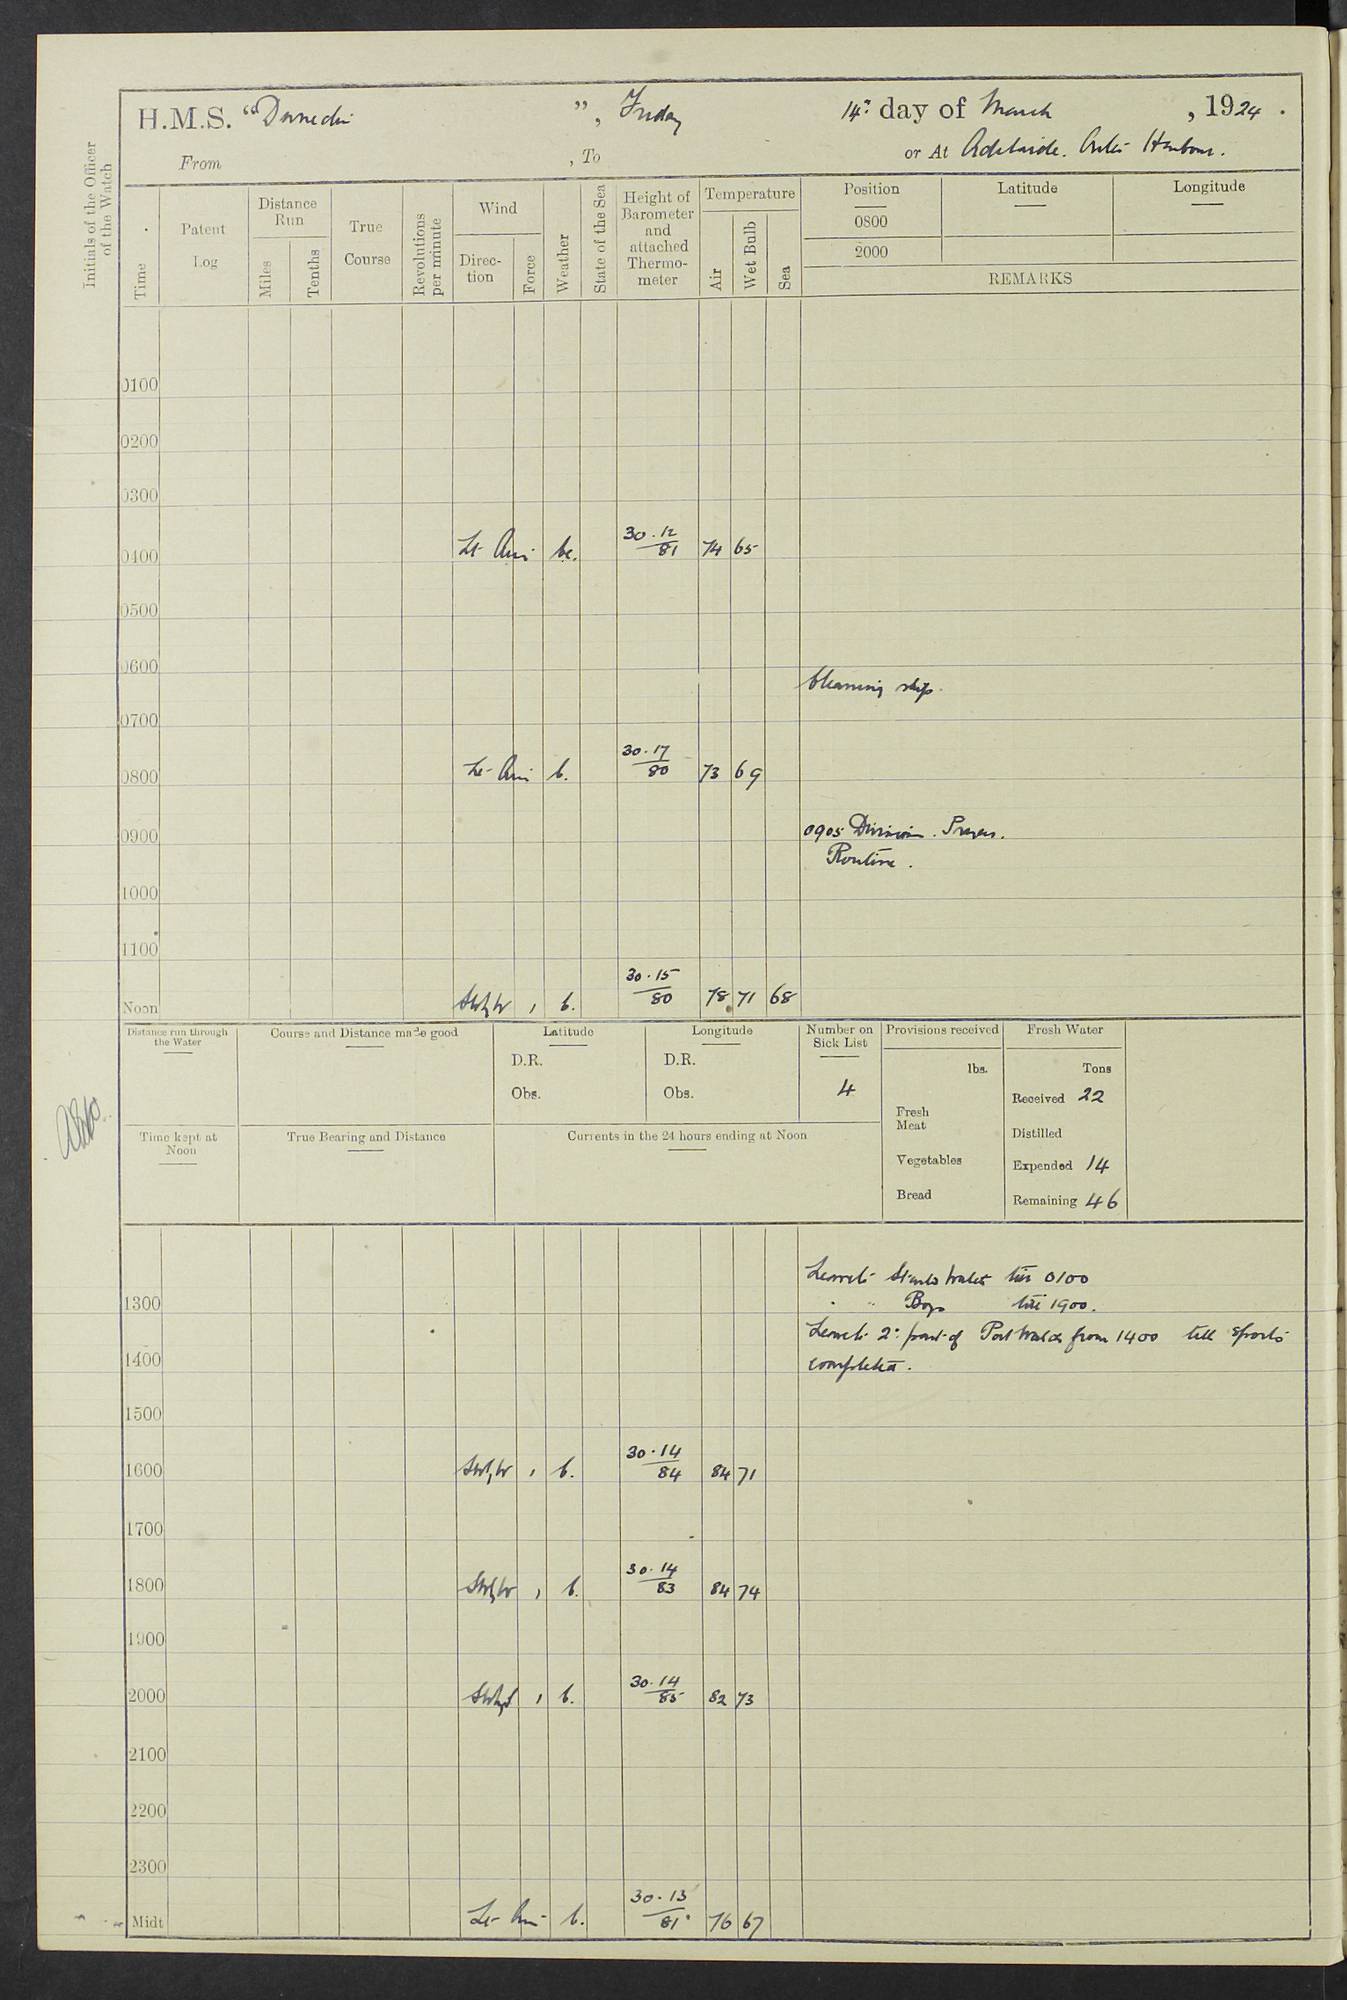 H.M.S. "Dunedin", Friday 14th day of March, 1924.
From , To or At Adelaide. Outer Harbour.
Initials of the Officer of the Watch
Time
Patent Log
Distance Run
Miles
Tenths
True Course
Revolutions per minute
Wind
Direction
Force
Weather
State of the Sea
Height of Barometer and attached Thermometer
Temperature
Air
Wet Bulb
Sea
Position Latitude Longitude
0800
2000
REMARKS
0100
0200
0300
0400 Lt Airs bc. 30.12 81 74 65
0500
0600
Cleaning ship.
0700
0800 Lt Airs b. 30.17 80 73 69
0900 0905 Divisions. Prayers.
Routine.
1000
1100
Noon SWbyW 1 b. 30.15 80 78 71 68
Distance run through the Water
Course and Distance made good
Latitude
D.R.
Obs.
Longitude
D.R.
Obs.
Number on Sick List
4
Provisions received
lbs.
Fresh Meat
Vegetables
Bread
Fresh Water
Tons
Received 22
Distilled
Expended 14
Remaining 46
Time kept at Noon
True Bearing and Distance
Currents in the 24 hours ending at Noon
Leave to Starbd Watch till 0100
" " Boys till 1900.
1300
Leave to 2nd part of Port Watch from 1400 till sports
completed.
1400
1500
1600 SWbyW 1 b. 30.14 84 84 71
1700
1800 SWbyW 1 b. 30.14 83 84 74
1900
2000 SWbyS 1 b. 30.14 85 82 73
2100
2200
2300
Midt Lt Airs b. 30.13 81 76 67